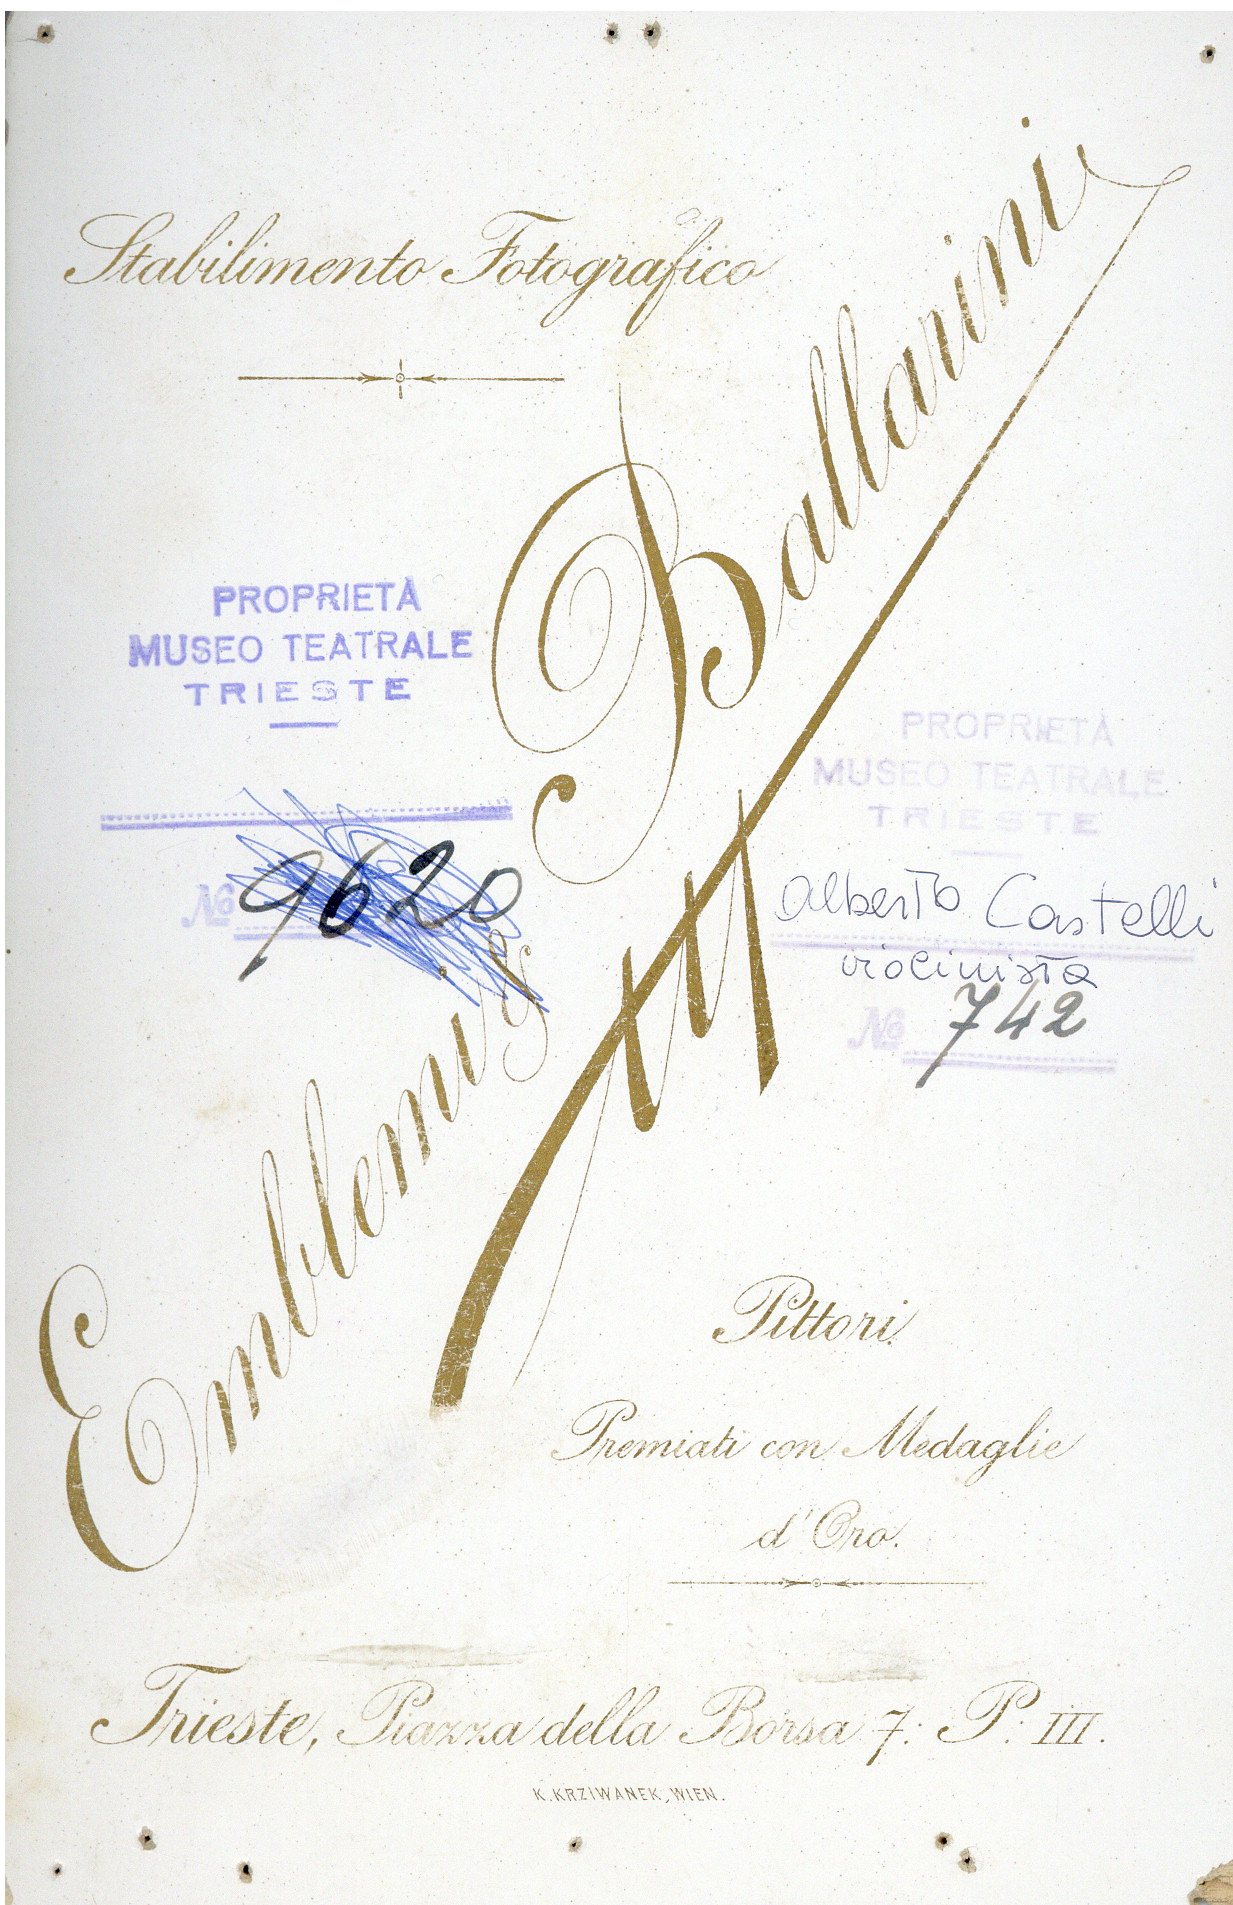 Stabilimento Fotografico
Emblemi & Ballarini
PROPRIETÀ
MUSEO TEATRALE
TRIESTE
No 9620
PROPRIETÀ
MUSEO TEATRALE
TRIESTE
Alberto Castelli
violinista
No 742
Pittori.
Premiati con Medaglie
d'Oro.
Trieste, Piazza della Borsa 7: P: III.
K. KRZIWANEK, WIEN.